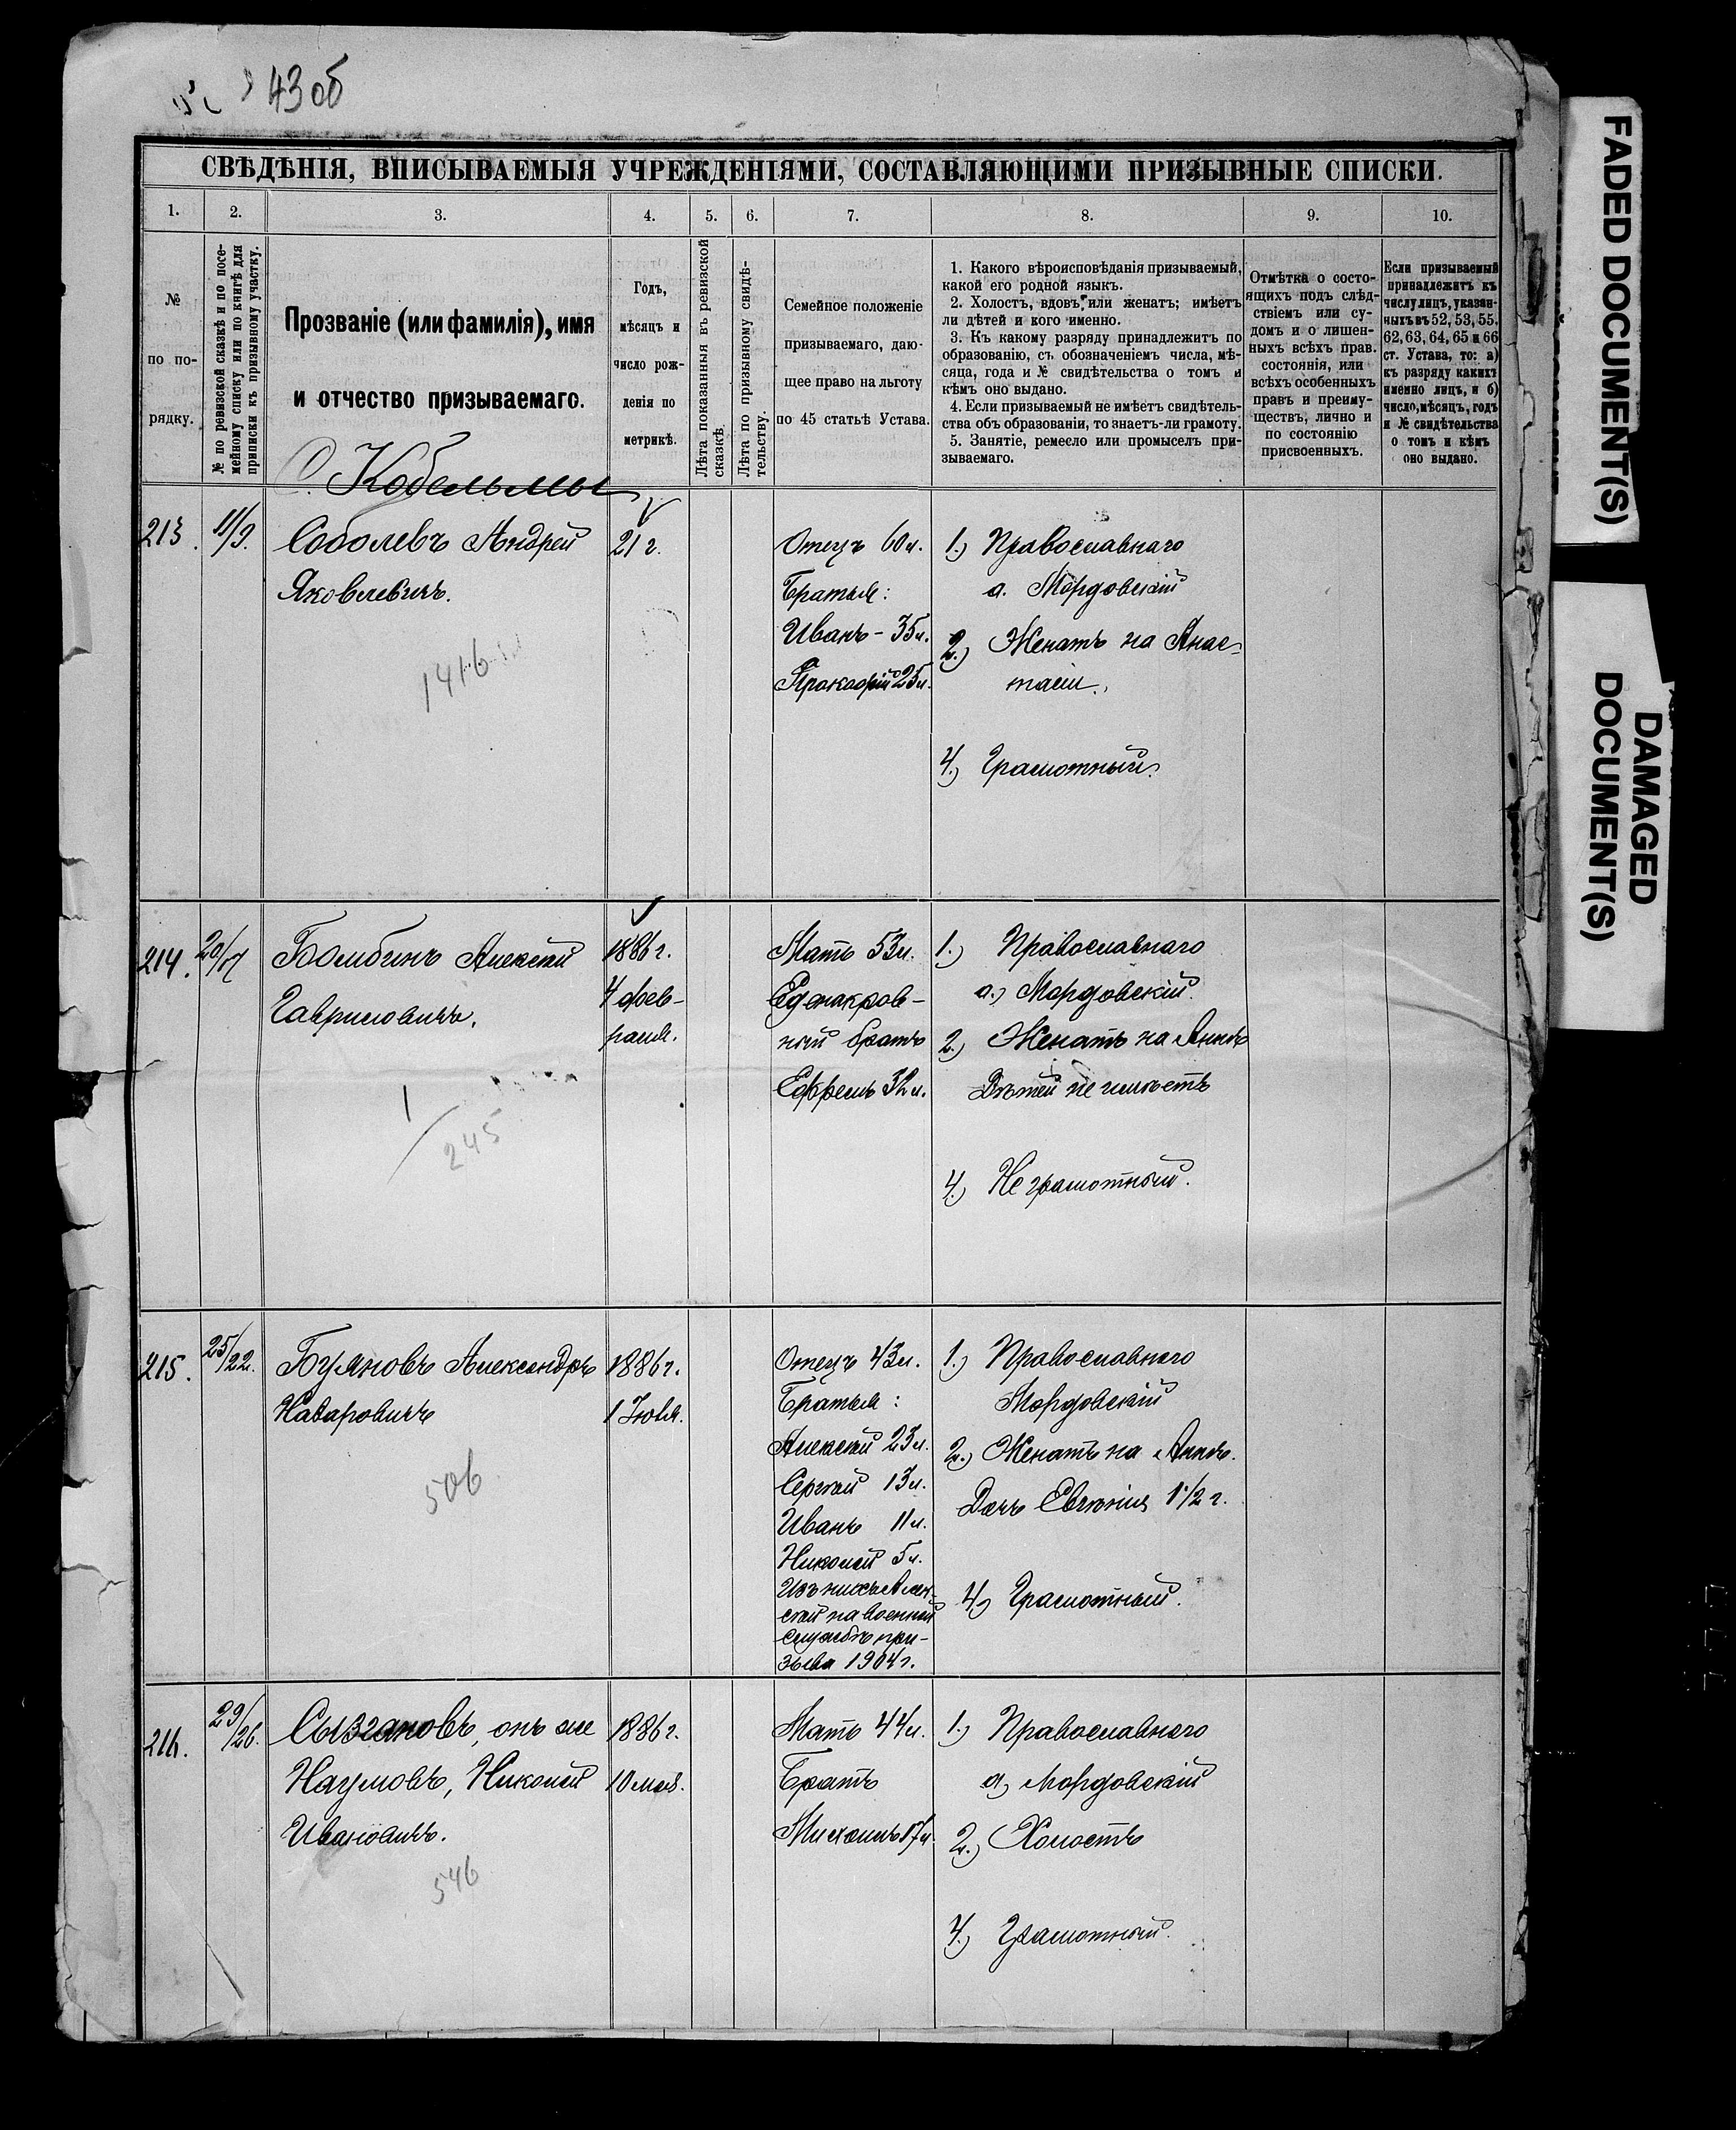 43 об
СВѢДѢНІЯ, ВПИСЫВАЕМЫЯ УЧРЕЖДЕНІЯМИ, СОСТАВЛЯЮЩИМИ ПРИЗЫВНЫЕ СПИСКИ.
1. 2. 3. 4. 5. 6. 7. 8. 9. 10.
№
по по-
рядку.
№ по ревизской сказкѣ и по посе-
мейному списку или по книгѣ для
приписки къ призывному участку.
Прозваніе (или фамилія), имя
и отчество призываемаго.
Годъ,
мѣсяцъ и
число рож-
денія по
метрикѣ.
Лѣта показанныя въ ревизской
сказкѣ.
Лѣта по призывному свидѣ-
тельству.
Семейное положеніе
призываемаго, даю-
щее право на льготу
по 45 статьѣ Устава.
1. Какого вѣроисповѣданія призываемый,
какой его родной языкъ.
2. Холостъ, вдовъ или женатъ; имѣетъ
ли дѣтей и кого именно.
3. Къ какому разряду принадлежитъ по
образованію, съ обозначеніемъ числа, мѣ-
сяца, года и № свидѣтельства о томъ и
кѣмъ оно выдано.
4. Если призываемый не имѣетъ свидѣтель-
ства объ образованіи, то знаетъ-ли грамоту.
5. Занятіе, ремесло или промыселъ при-
зываемаго.
Отмѣтка о состо-
ящихъ подъ слѣд-
ствіемъ или су-
домъ и о лишен-
ныхъ всѣхъ прав.
состоянія, или
всѣхъ особенныхъ
правъ и преиму-
ществъ, лично и
по состоянію
присвоенныхъ.
Если призываемый
принадлежитъ къ
числу лицъ, указан-
ныхъ въ 52, 53, 55,
62, 63, 64, 65 и 66
ст. Устава, то: а)
къ разряду какихъ
именно лицъ, и б)
число, мѣсяцъ, годъ
и № свидѣтельства
о томъ и кѣмъ
оно выдано.
С. Кобельмы
213. 11/9.
Соболевъ Андрей
Яковлевичъ.
1416
21 г.
Отецъ 60 л.
Братья:
Иванъ - 35 л.
Прокофій 25 л.
1.) Православнаго
а. Мордовскій
2.) Женатъ на Анас-
тасіи.
4.) Грамотный.
214. 20/17
Бомбинъ Алексѣй
Гавриловичъ.
1/245
1886 г.
4 фев-
раля.
Мать 53 л.
Единокров-
ный братъ
Ефремъ 32 л.
1.) Православнаго
а.) Мордовскій.
2.) Женатъ на Аннѣ
Дѣтей не имѣетъ
4.) Неграмотный.
215. 25/22.
Буяновъ Александръ
Назаровичъ
506
1886 г.
1 Іюля.
Отецъ 43 л.
Братья:
Алексѣй 23 л.
Сергѣй 13 л.
Иванъ 11 л.
Николай 5 л.
Изъ нихъ Алек-
сѣй на военной
службѣ при-
зыва 1904 г.
1.) Православнаго
Мордовскій
2.) Женатъ на Аннѣ.
Дочь Евгенія 1 1/2 г.
4) Грамотный.
216. 29/26.
Сызгановъ, онъ же
Наумовъ, Николай
Ивановичъ.
546
1886 г.
10 мая.
Мать 44 л.
Братъ
Михаилъ 17 л.
1.) Православнаго
а) Мордовскій
2.) Холостъ
4.) Грамотный.
FADED DOCUMENT(S)
DAMAGED
DOCUMENT(S)